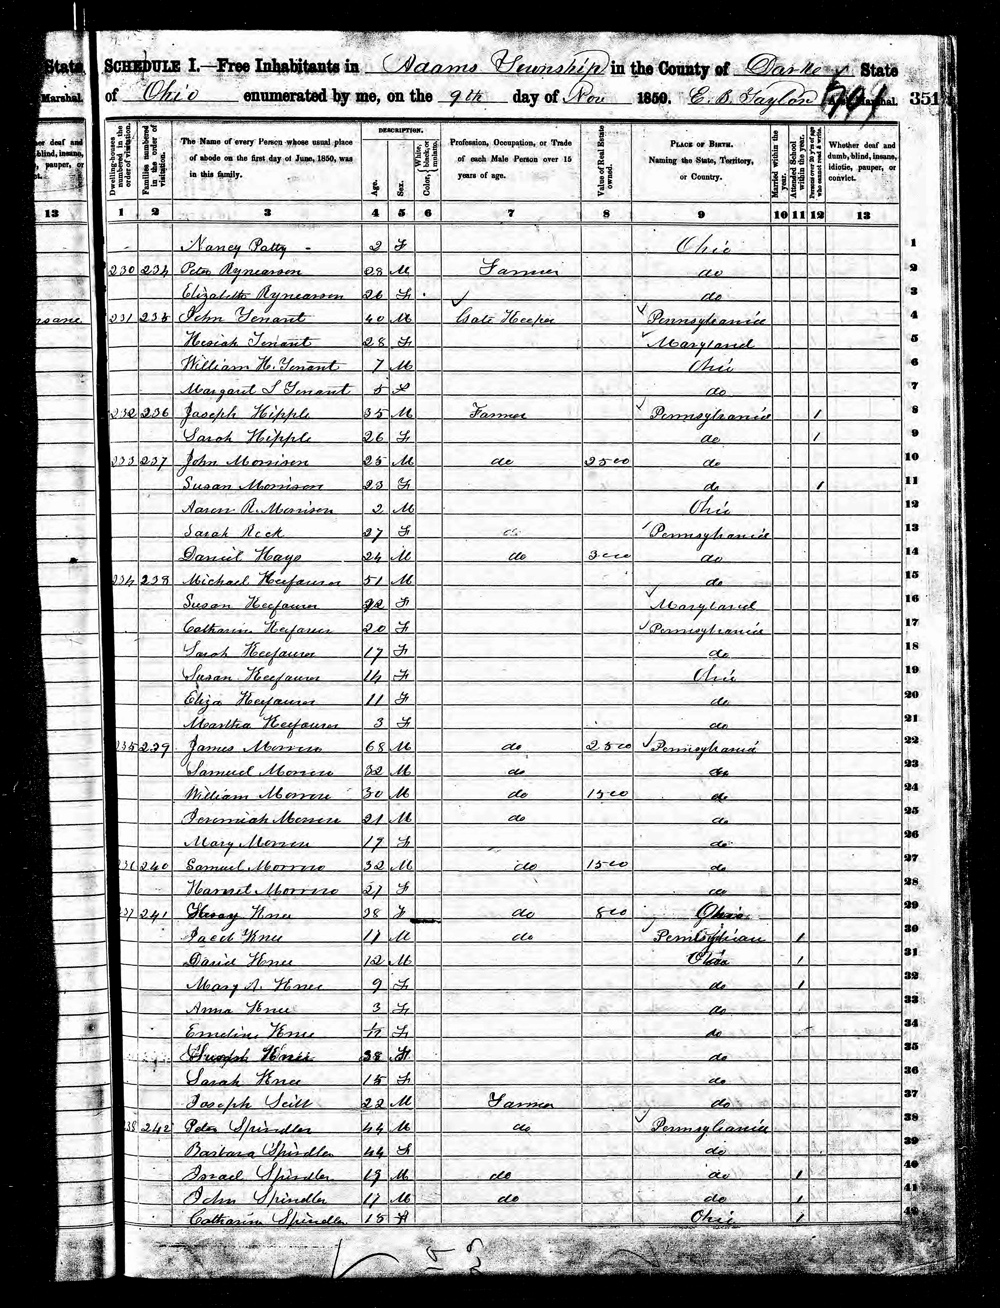 State
Marshal.
SCHEDULE I.—Free Inhabitants in Adams Township in the County of Darke State
of Ohio enumerated by me, on the 9th day of Nov 1850. E. B. Taylor Marshal. 351
DESCRIPTION.
Dwelling-houses numbered in the order of visitation.
Families numbered in the order of visitation.
The Name of every Person whose usual place of abode on the first day of June, 1850, was in this family.
Age.
Sex.
Color, { White, black, or mulatto.
Profession, Occupation, or Trade of each Male Person over 15 years of age.
Value of Real Estate owned.
PLACE OF BIRTH. Naming the State, Territory, or Country.
Married within the year.
Attended School within the year.
Persons over 20 y'rs of age who cannot read & write.
Whether deaf and dumb, blind, insane, idiotic, pauper, or convict.
13 1 2 3 4 5 6 7 8 9 10 11 12 13
Nancy Patty - 2 F Ohio 1
230 234 Peter Rynearson 28 M Farmer do 2
Elizabeth Rynearson 26 F do 3
231 235 John Tenant 40 M Gate Keeper Pennsylvania 4
28 F Maryland 5
William H. Tenant 7 M Ohio 6
Margaret S Tenant 5 F do 7
232 236 Joseph Hipple 35 M Farmer Pennsylvania 1 8
Sarah Hipple 26 F do 1 9
233 237 John Morrison 25 M do 2500 do 10
Susan Morrison 23 F do 1 11
Aaron R. Morrison 2 M Ohio 12
Sarah Rock 27 F Pennsylvania 13
Daniel Hays 24 M do 3000 do 14
234 238 Michael Keefauver 51 M do 15
Susan Keefauver F Maryland 16
Catharine Keefauver 20 F Pennsylvania 17
Sarah Keefauver 17 F do 18
Susan Keefauver 14 F Ohio 19
Eliza Keefauver 11 F do 20
Martha Keefauver 3 F do 21
235 239 James Morrow 68 M do 2500 Pennsylvania 22
Samuel Morrow 32 M do do 23
William Morrow 30 M do 1500 do 24
Jeremiah Morrow 21 M do do 25
Mary Morrow F do 26
236 240 Samuel Morrow 32 M do 1500 do 27
Harriet Morrow 27 F do 28
237 241 Knee 38 do 800 Ohio 29
Jacob Knee 17 M do 1 30
David Knee 12 M Ohio 1 31
Mary A. Knee 9 F do 1 32
Anna Knee 3 F do 33
Emeline Knee F do 34
Knee 38 do 35
Sarah Knee 15 F do 36
Joseph 22 M Farmer do 37
238 242 Peter Spindler 44 M do Pennsylvania 38
Barbara Spindler 44 F do 39
Israel Spindler 19 M do do 1 40
John Spindler 17 M do do 1 41
Catharine Spindler 15 F Ohio 1 42